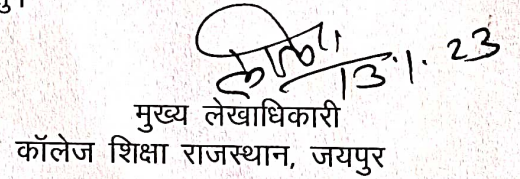 13.1.23
मुख्य लेखाधिकारी
कॉलेज शिक्षा राजस्थान, जयपुर